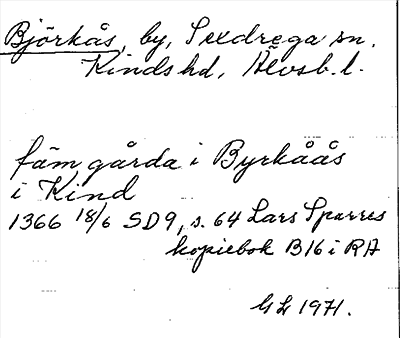 Björkås, by, Sexdrega sn.
Kinds hd, Älvsb. l.
fäm gårda i Byrkåås
i Kind
1366 18/6 SD9, s. 64 Lars Sparres
kopiebok B16 i RA
G L 1971.